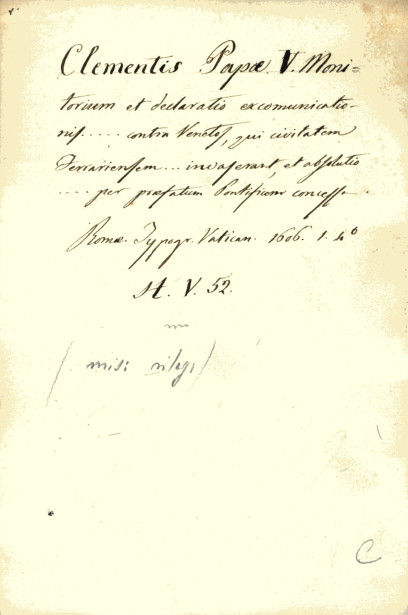 Clementis Papæ V. Moni=
torium et declaratio excomunicatio-
nis ..... contra Venetos, qui civitatem
Ferrariensem ... invaserant, et absolutio
.... per præfatum Pontificem concessa.
Romæ. Typogr. Vatican. 1606. 1. 4º
St. V. 52.
(misc: rileg:)
C